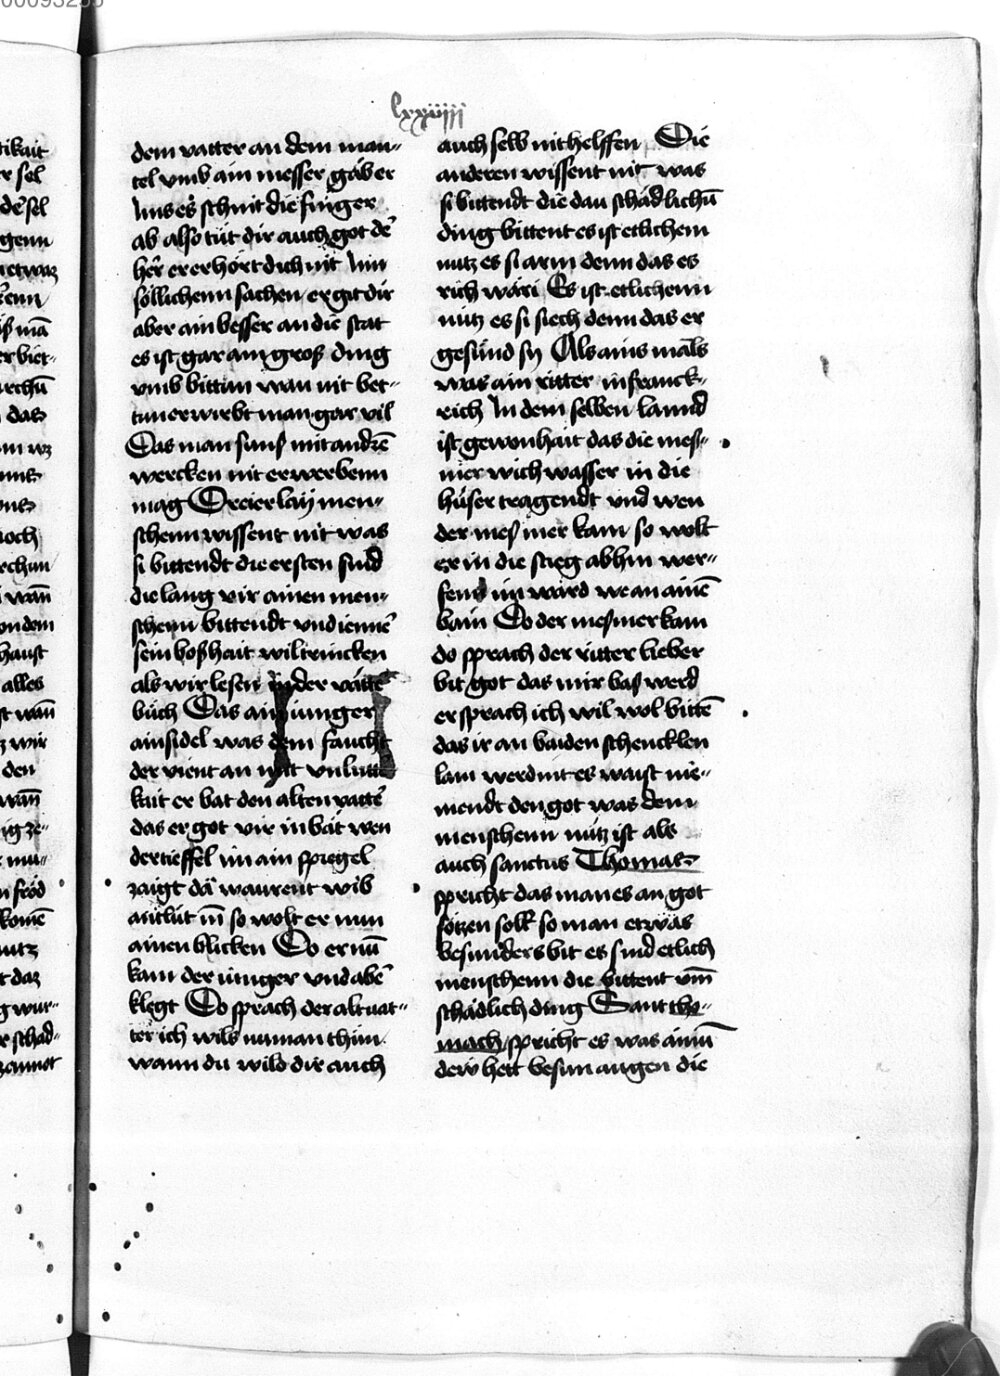 lxxviiij
dem vatter an dem man-
tel vmb ain messer gäb er
ims es schnit die finger
ab also tüt dir auch got dē
her er erhört dich nit Inn
söllichenn sachen er git dir
aber ain besser an die stat
es ist gar ain groß ding
vmb bittan wan mit bet-
tun erwirbt man gar vil
Das man sunst mit andrē
wercken nit erwerbenn
mag Dreier laÿ men-
schenn wissent nit was
si bittendt die ersten sind
die lang vir ainen men-
schenn bittendt vnd iennē
sein boßhait wil trincken
als wir lesen in der vätte
büch Das ain iunger
ainsidel was dem faucht
der vient an mitt vnlutte
kait er bat den alten vattē
das er got vir in bät wen
der tieffel im ain spiegel
zaigt da waurent wib
antlüt in so wolt er nun
ainen blicken Do er nū
kam der iunger vnd abē
klegt Do sprach der alt vat-
ter ich wils numan thun
wann du wild dir auch
auch selb nit helffen Die
anderen wissent nit was
si bittendt die dau schädlichū
ding bittent es ist etlichem
nutz es si arm denn das es
rich wäri Es ist etlichenn
nütz es si siech denn das er
gesünd sy Als ains mäls
was ain ritter in franck-
rich In dem selben lannd
ist gewonhait das die mes-
ner wich wasser in die
hüser tragendt vnd wen
der mesner kam so wolt
er in die stieg abhin wer-
fend im ward we an ainē
bain Do der mesner kam
do sprach der ritter lieber
bit got das mir bas werd
er sprach ich wil wol bittē
das ir an baiden schencklen
lam werdint es waist nie-
mendt den got was dem
menschenn nütz ist als
auch sanctus Thomas
spricht das man es an got
sötzen soll so man etwas
besunders bit es sind etlich
menschenn die bittent vm̄
schädlich ding Sant tho-
mas spricht es was ainū
dew hett besun augen die